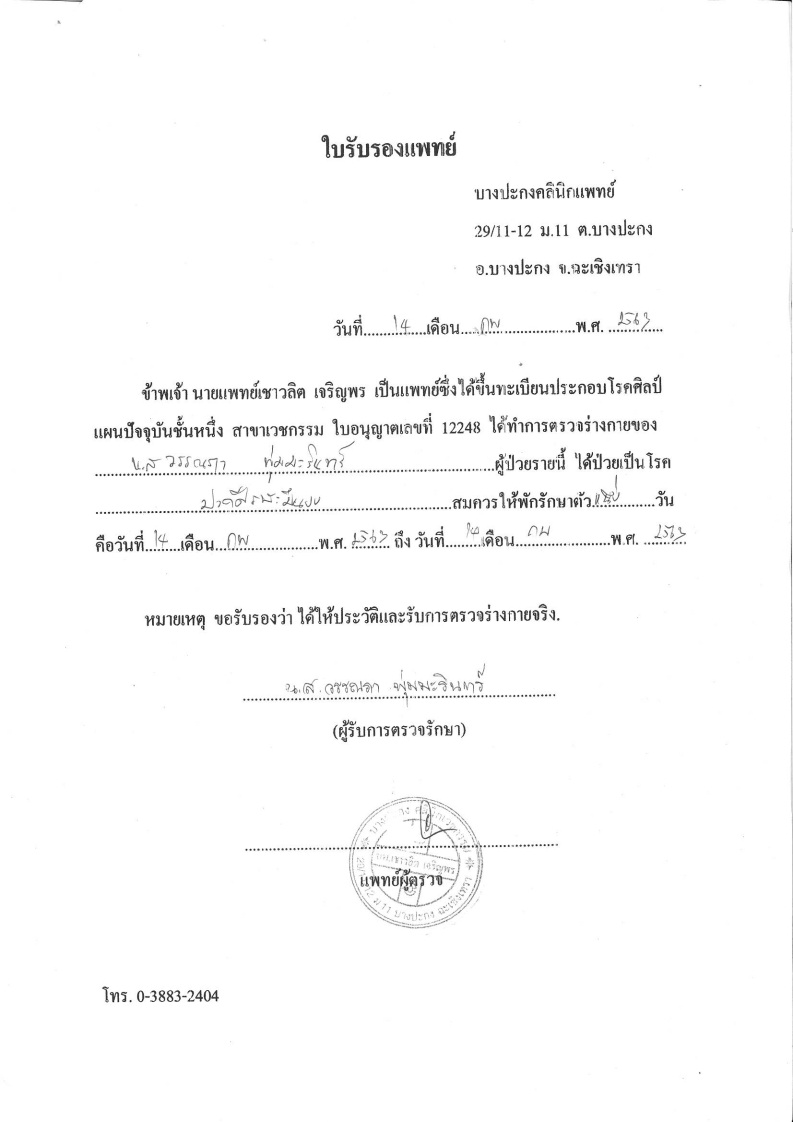 ใบรับรองแพทย์
บางปะกงคลินิกแพทย์
29/11-12 ม.11 ต.บางปะกง
อ.บางปะกง จ.ฉะเชิงเทรา
วันที่........14......เดือน.....กพ...................พ.ศ. ...2563...
ข้าพเจ้า นายแพทย์เชาวลิต เจริญพร เป็นแพทย์ซึ่งได้ขึ้นทะเบียนประกอบโรคศิลป์
แผนปัจจุบันชั้นหนึ่ง สาขาเวชกรรม ใบอนุญาตเลขที่ 12248 ได้ทำการตรวจร่างกายของ
น.ส วรรณดา พุ่มมะรินทร์ ผู้ป่วยรายนี้ ได้ป่วยเป็นโรค
สมควรให้พักรักษาตัว วัน
คือวันที่..14....เดือน...กพ...................พ.ศ. 2563 ถึง วันที่ 14 เดือน...กพ..................พ.ศ. ..2563
หมายเหตุ ขอรับรองว่า ได้ให้ประวัติและรับการตรวจร่างกายจริง.
น.ส. วรรณดา พุ่มมะรินทร์
(ผู้รับการตรวจรักษา)
เจริญพร
แพทย์ผู้ตรวจ
ม 11 บางปะกง ฉะเชิงเทรา
โทร. 0-3883-2404